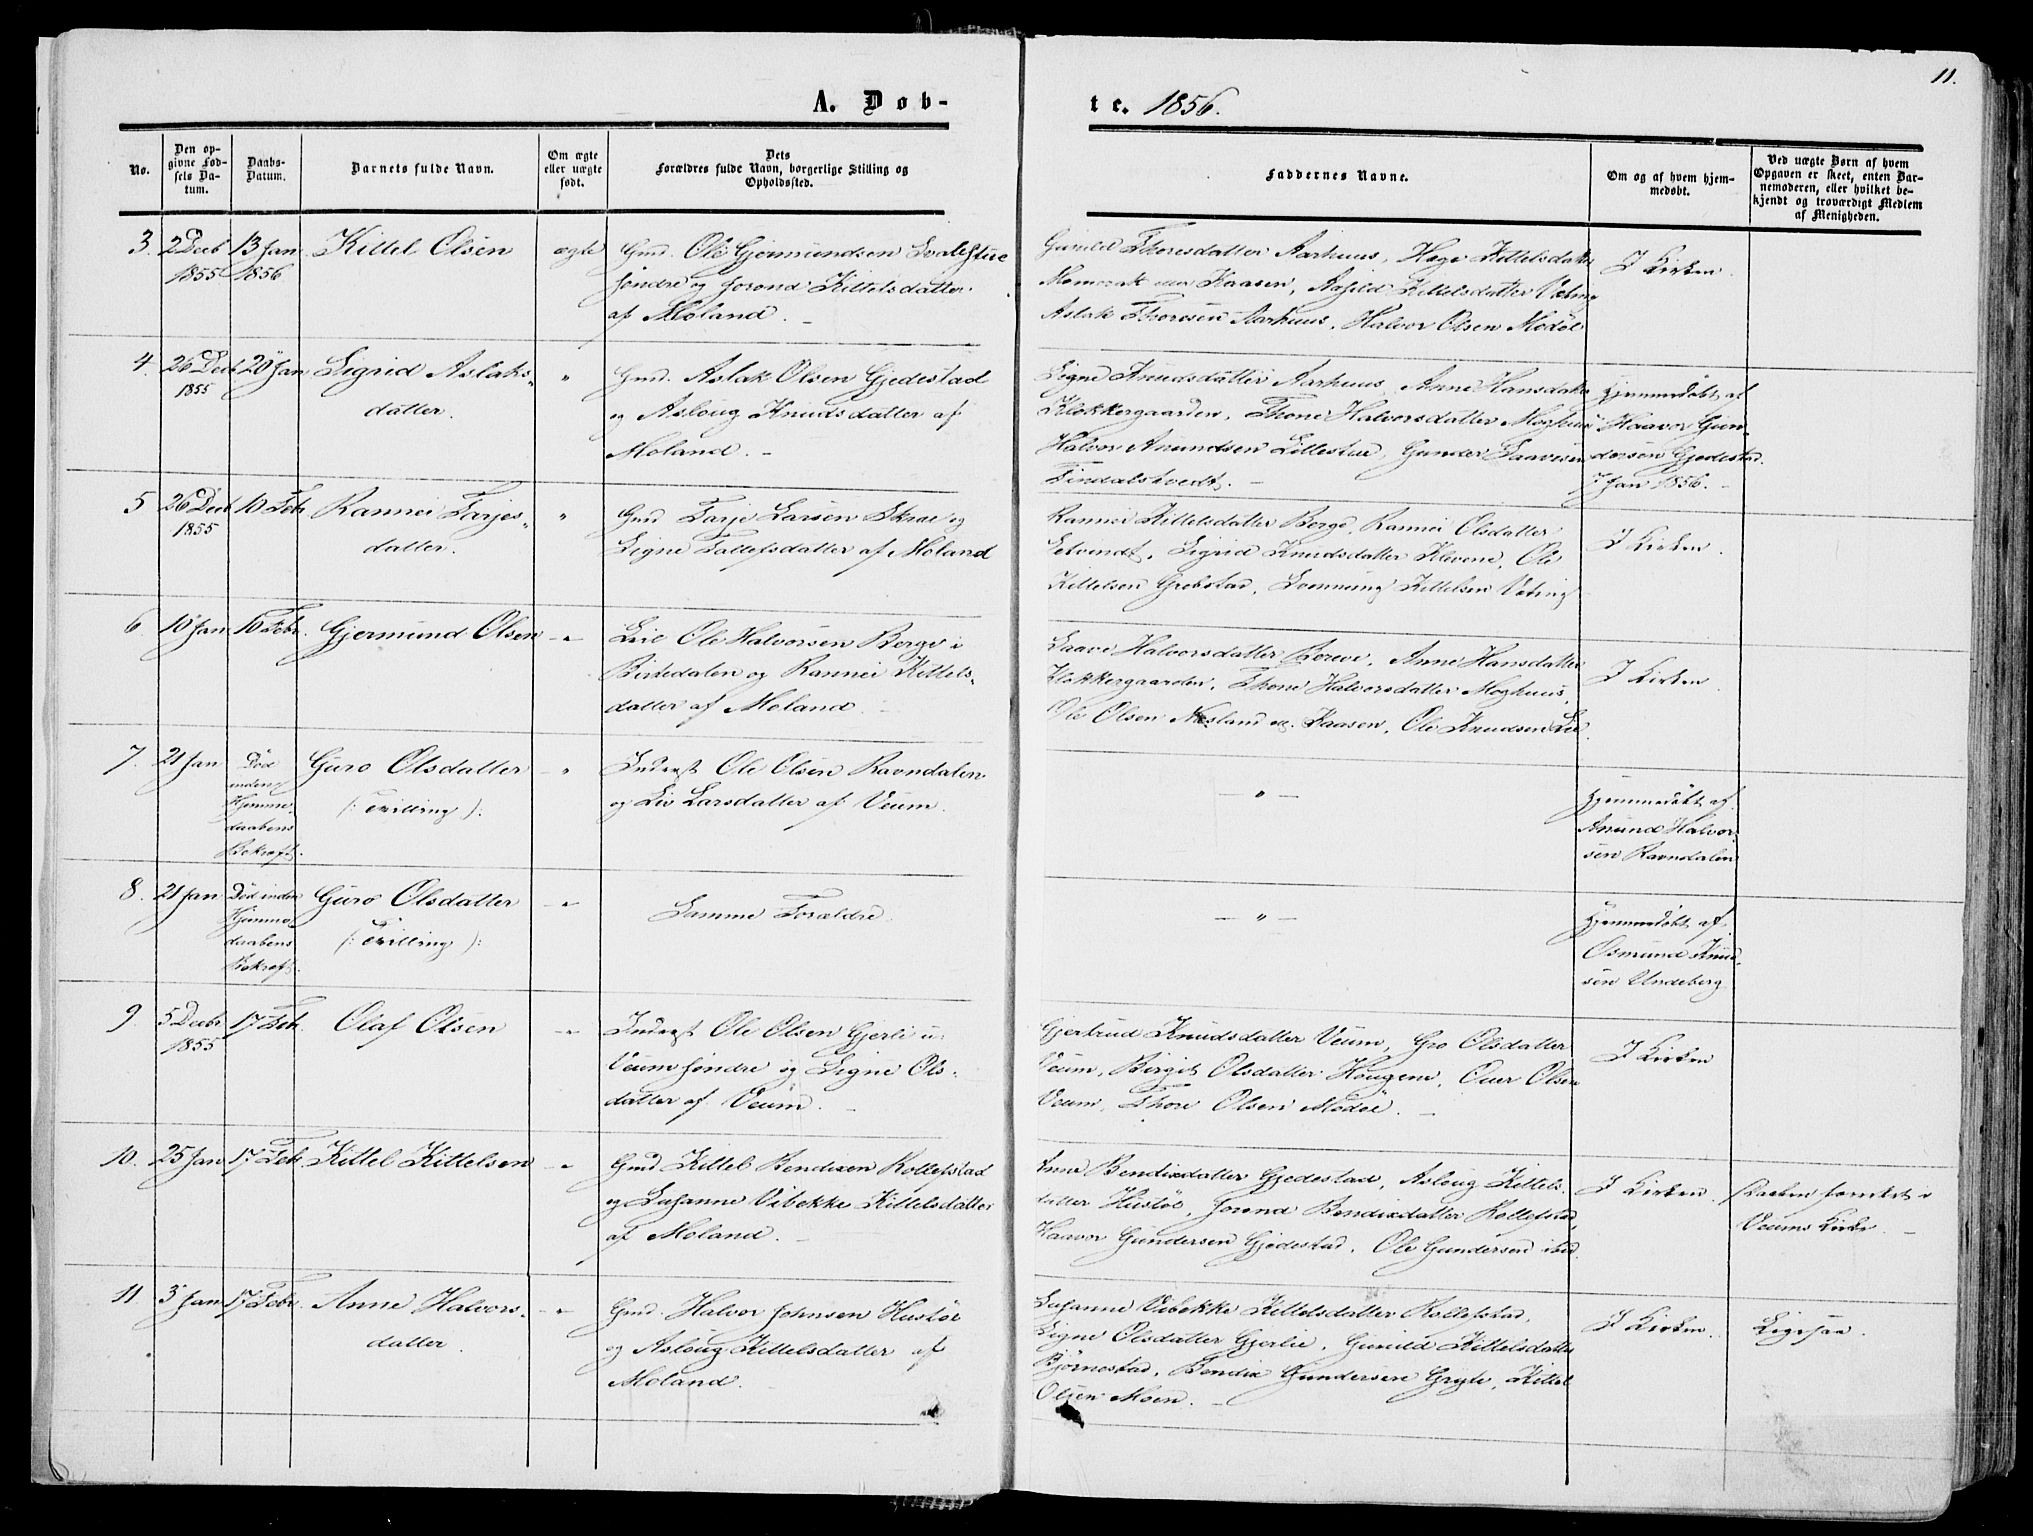 11.
A. Døb-
te. 1856.
No.
Den op-
givne Fød-
sels Da-
tum.
Daabs-
Datum.
Barnets fulde Navn.
Om ægte
eller uægte
født.
Dets
Forældres fulde Navn, borgerlige Stilling og
Opholdssted.
Faddernes Navne.
Om og af hvem hjem-
medøbt.
Ved uægte Børn af hvem
Opgaven er skeet, enten Bar-
nemoderen, eller hvilket be-
kjendt og troværdigt Medlem
af Menigheden.
3. 2 Decb 13 Jan Kittel Olsen ægte Gmd. Ole Gjermundsen
1855 1856 søndre og Jorond Kittelsdatter
af Moland.
Gunild Thoresdatter Aarhuus, Hæge Kittelsdatter
Kaasen, Aasild Kittelsdatter Veting
Aslak Thoresen Aarhuus, Halvor Olsen Modøl
I Kirken.
4. 26 Decb 20 Jan Sigrid Aslaks- " Gmd. Aslak Olsen Gjedestad
1855 datter. og Asloug Knudsdatter af
Moland.
Signe Knudsdatter Aarhuus, Anne Hansdatter
Klokkergaarden, Thone Halvorsdatter Moghuus
Halvor Anundsen Lillestue, Gunder Saavesen
Findalstvedt.
Hjemmedøbt af
Haavor Gun-
dersen Gjedestad.
7 Jan 1856.
5 26 Decb 10 Feb Rannei Tarjes- " Gmd Tarje Larsen Skrae og
1855 datter. Signe Tallefsdatter af Moland
Rannei Kittelsdatter Berge, Rannei Olsdatter
Sigrid Knudsdatter Klevene, Ole
Kittelsen Grobstad, Kittelsen Veting
I Kirken.
6. 10 Jan 10 Febr. Gjermund Olsen " Leil Ole Halvorsen Berge i
Birtedalen og Rannei Kittels-
datter af Moland.
Saave Halvorsdatter Anne Hansdatter
Klokkergaarden, Thone Halvorsdatter Moghuus,
Ole Olsen Næsland Kaasen, Ole Knudsen Lie.
I Kirken.
7. 21 Jan Død Guro Olsdatter " Inderst Ole Olsen Ravndalen
inden (: Tvilling ): og Liv Larsdatter af Veum.
Hjemme-
daabens
Bekræft.
— " —
Hjemmedøbt af
Anund Halvor-
sen Ravndalen
8. 21 Jan Død inden Guro Olsdatter " Samme Forældre.
Hjemme- (: Tvilling ):
daabens
Bekræft.
— " —
Hjemmedøbt af
Osmund Knud-
sen Undeberg
9 5 Decbr 17 Feb. Olaf Olsen " Inderst Ole Olsen Gjerli u.
1855 Veum søndre og Signe Ols-
datter af Veum.
Gjertrud Knudsdatter Veum, Gro Olsdatter
Veum, Birgit Olsdatter Haugene, Olsen
Veum, Thore Olsen Modøl.
I Kirken
10. 25 Jan 17 Feb. Kittel Kittelsen " Gmd Kittel Bendixen Rollefstad
og Susanne Vibekke Kittelsdatter
af Moland.
Anne Bendixdatter Gjedestad, Asloug Kittels-
datter Hustøl, Jorond Bendixdatter Rollefstad,
Haavor Gundersen Gjedestad, Ole Gundersen ibid.
I Kirken.
Daaben forrettet i
Veums Kirke.
11. 3 Jan 17 Febr. Anne Halvors- " Gmd. Halvor Johnsen Hustøl
datter. og Asloug Kittelsdatter af
Moland.
Susanne Vibekke Kittelsdatter Rollefstad,
Signe Olsdatter Gjerlie, Gunild Kittelsdatter
Bjørnestad, Bendix Gundersen Kittel
Olsen Moen.
I Kirken.
Ligesaa.